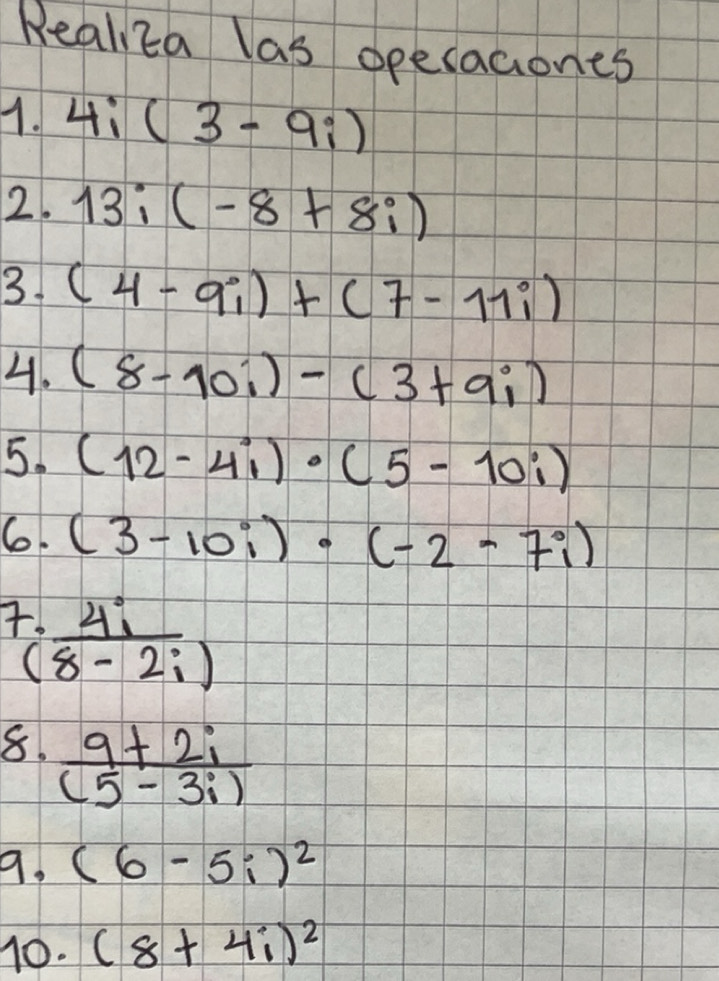 Realiza las operaciones
1. 4i ( 3 - 9i)
2. 13i ( -8 + 8i)
3. (4 - 9i) + (7 - 11i)
4. (8 - 10i) - (3 + 9i)
5. (12 - 4i) • (5 - 10i)
6. (3 - 10i) • (-2 - 7i)
7. 4i
(8 - 2i)
8. 9 + 2i
(5 - 3i)
9. (6 - 5i)²
10. (8 + 4i)²